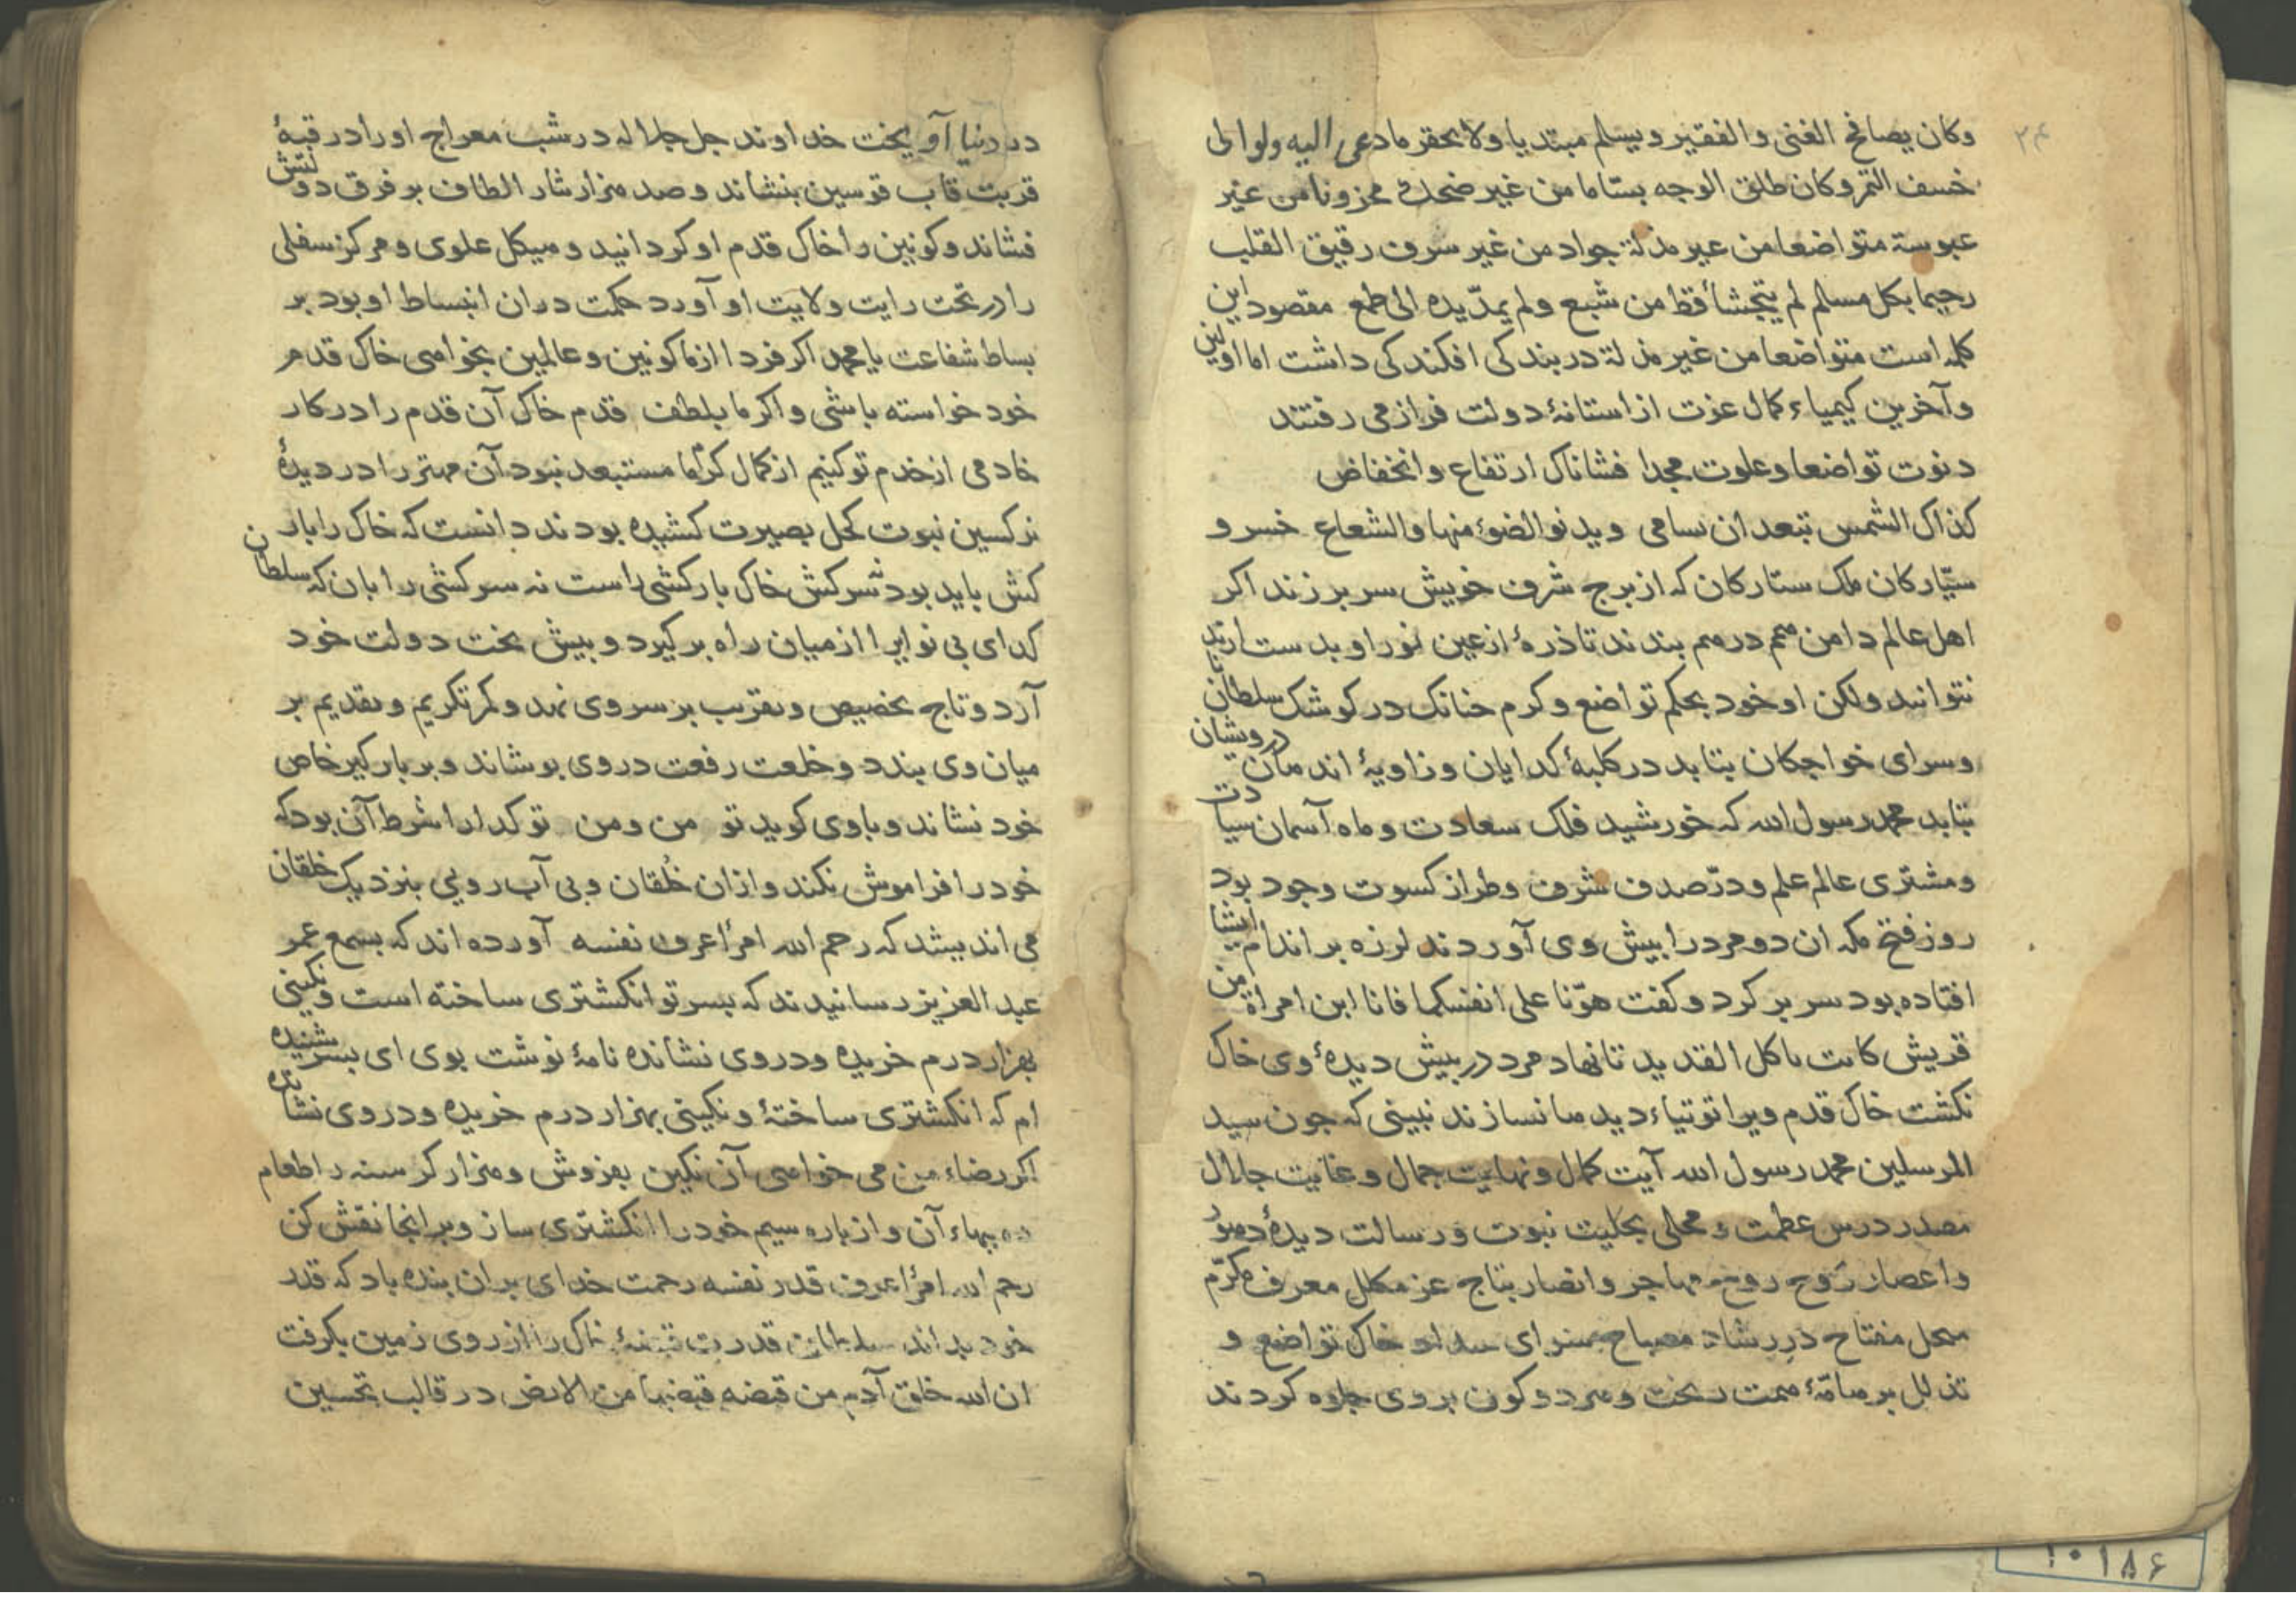 ۲۴
وکان یصافح الغنی والفقیر ویسلم مبتدیا ولا یحقر ما دعی الیه ولو الی
خسف التمر وکان طلق الوجه بسّاما من غیر ضحک محزونا من غیر
عبوسة متواضعا من غیر مذلة جواد من غیر سرف رقیق القلب
رحیما بکل مسلم لم یتجشأ قط من شبع ولم یمدّ یده الی طمع مقصود این
کلمه است متواضعا من غیر مذلة در بندکی افکندکی داشت اما اولین
وآخرین کیمیاء کمال عزت از استانهٔ دولت فراز می رفتند
دنوت تواضعا وعلوت مجدا فشاناک ارتفاع وانخفاض
کذاک الشمس تبعد ان تسامی ویدنو الضوء منها والشعاع خسرو
سیّارکان ملک ستارکان که از برج شرف خویش سر برزند اکر
اهل عالم دامن هم در هم بندند تا ذرهٔ از عین نور او بدست ارند
نتوانند ولکن او خود بحکم تواضع وکرم خنانک در کوشک سلطان
وسرای خواجکان بتابد در کلبهٔ کدایان وزاویهٔ اندهان درویشان
بتابد محمد رسول الله که خورشید فلک سعادت وماه آسمان سیادت
ومشتری عالم علم ودرّ صدف شرف وطراز کسوت وجود بود
روز فتح مکه ان دو مرد را بیش وی آوردند لرزه بر اندام ایشان
افتاده بود سر بر کرد وکفت هوّنا علی انفسکما فانا ابن امراة من
قریش کانت تاکل القدید تا نهاد مرد در بیش دیدهٔ وی خاک
نکشت خاک قدم ویرا توتیاء دیدها نسازند نبینی که جون سید
المرسلین محمد رسول الله آیت کمال ونهایت جمال وغایت جلال
مصدر درس عظمت و محلی بحلیت نبوت ورسالت دیدهٔ دهور
واعصار رَوح روح مهاجر وانصار بتاج عز مکلل معرف مکرّم
مفتاح در رشاد مصباح سرای خاک تواضع و
تذلل بر هامّهٔ همت ریخت وهر دو کون بر وی جلوه کردند
در دنیا آویخت خداوند جل جلاله در شب معراج او را در قبهٔ
قربت قاب قوسین بنشاند وصد هزار نثار الطاف بر فرق دولتش
فشاند وکونین را خاک قدم او کردانید وهیکل علوی ومرکز سفلی
را در تحت رایت ولایت او آورد حکمت دران انبساط او بود بر
بساط شفاعت یا محمد اکر فردا از ما کونین وعالمین بخواهی خاک قدم
خود خواسته باشی واکر ما بلطف قدم خاک آن قدم را در کار
خادمی از خدم تو کنیم از کمال کرم ما مستبعد نبود آن مهتر را در دیدهٔ
نرکسین نبوت کحل بصیرت کشیده بودند دانست که خاک را بار
کش باید بود نه سرکش خاک بارکشی راست نه سرکشی را بان که سلطان
کدای بی نوایرا از میان راه برکیرد وبیش تخت دولت خود
آرد وتاج تخصیص وتقریب بر سر وی نهد وکمر تکریم وتقدیم بر
میان وی بندد وخلعت رفعت در وی بوشاند وبر بارکیر خاص
خود نشاند وباوی کوید تو من ومن تو کدا را شرط آن بود که
خود را فراموش نکند وازان خُلقان وبی آب رویی بنزدیک خلقان
می اندیشد که رحم الله امرأ عرف نفسه آورده اند که بسمع عمر
عبد العزیز رسانیدند که بسر تو انکشتری ساخته است ونکینی
بهزار درم خریده ودر وی نشانده نامهٔ نوشت بوی ای بسر شنیده
ام که انکشتری ساختهٔ ونکینی بهزار درم خریده ودر وی نشانده
اکر رضاء من می خواهی آن نکین بفروش وهزار کرسنه را طعام
ده ببهاء آن واز باره سیم خود را انکشتری ساز وبر انجا نقش کن
رحم الله امرأ عرف قدر نفسه رحمت خدای بران بنده باد که قدر
خود بداند سلطان قدرت قبضهٔ خاک را از روی زمین بکرفت
ان الله خلق آدم من قبضه قبضها من الارض در قالب تحسین
۱۰۱۸۶